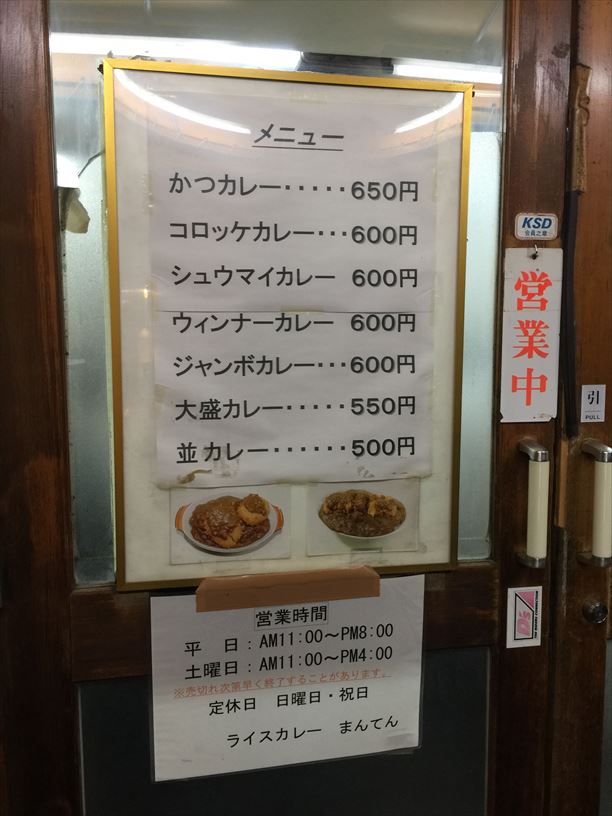 メニュー
かつカレー・・・・・650円
コロッケカレー・・・600円
シュウマイカレー 600円
ウィンナーカレー 600円
ジャンボカレー・・・600円
大盛カレー・・・・・550円
並カレー・・・・・・500円
KSD
会員之章
営業中
引
PULL
営業時間
平　日：AM11:00～PM8:00
土曜日：AM11:00～PM4:00
※売切れ次第早く終了することがあります。
定休日　日曜日・祝日
ライスカレー　まんてん